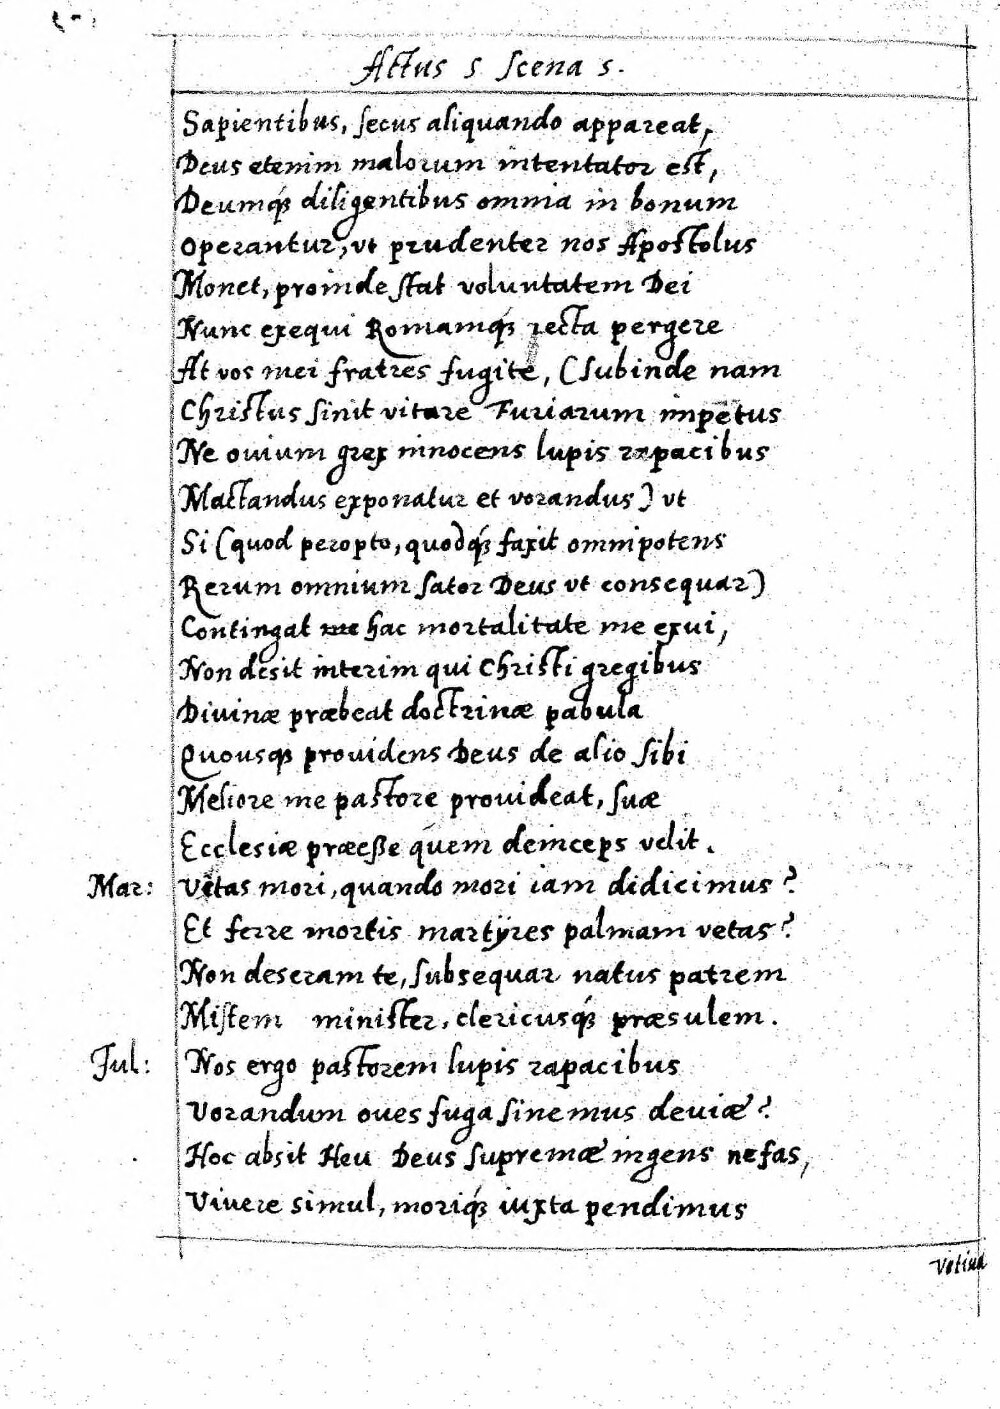 Actus 5 Scena 5.
Sapientibus, secus aliquando appareat,
Deus etenim malorum intentator est,
Deumq́; diligentibus omnia in bonum
Operantur, vt prudenter nos Apostolus
Monet, proinde stat voluntatem Dei
Nunc exequi Romamq́; recta pergere
At vos mei fratres fugite, (subinde nam
Christus sinit vitare Furiarum impetus
Ne ouium grex innocens lupis rapacibus
Mactandus exponatur et vorandus) vt
Si (quod peropto, quodq́; faxit omnipotens
Rerum omnium sator Deus vt consequar)
Contingat me hac mortalitate me exui,
Non desit interim qui Christi gregibus
Diuinæ præbeat doctrinæ pabula
Quousq; prouidens Deus de alio sibi
Meliore me pastore prouideat, suæ
Ecclesiæ præeße quem deinceps velit.
Mar: Vetas mori, quando mori iam didicimus?
Et ferre mortis martyres palmam vetas?
Non deseram te, subsequar natus patrem
Mistem minister, clericusq́; præsulem.
Jul: Nos ergo pastorem lupis rapacibus
Vorandum oues fuga sinemus deuiæ?
Hoc absit Heu Deus supremæ ingens nefas,
Viuere simul, moriq́; iuxta pendimus
Votiua